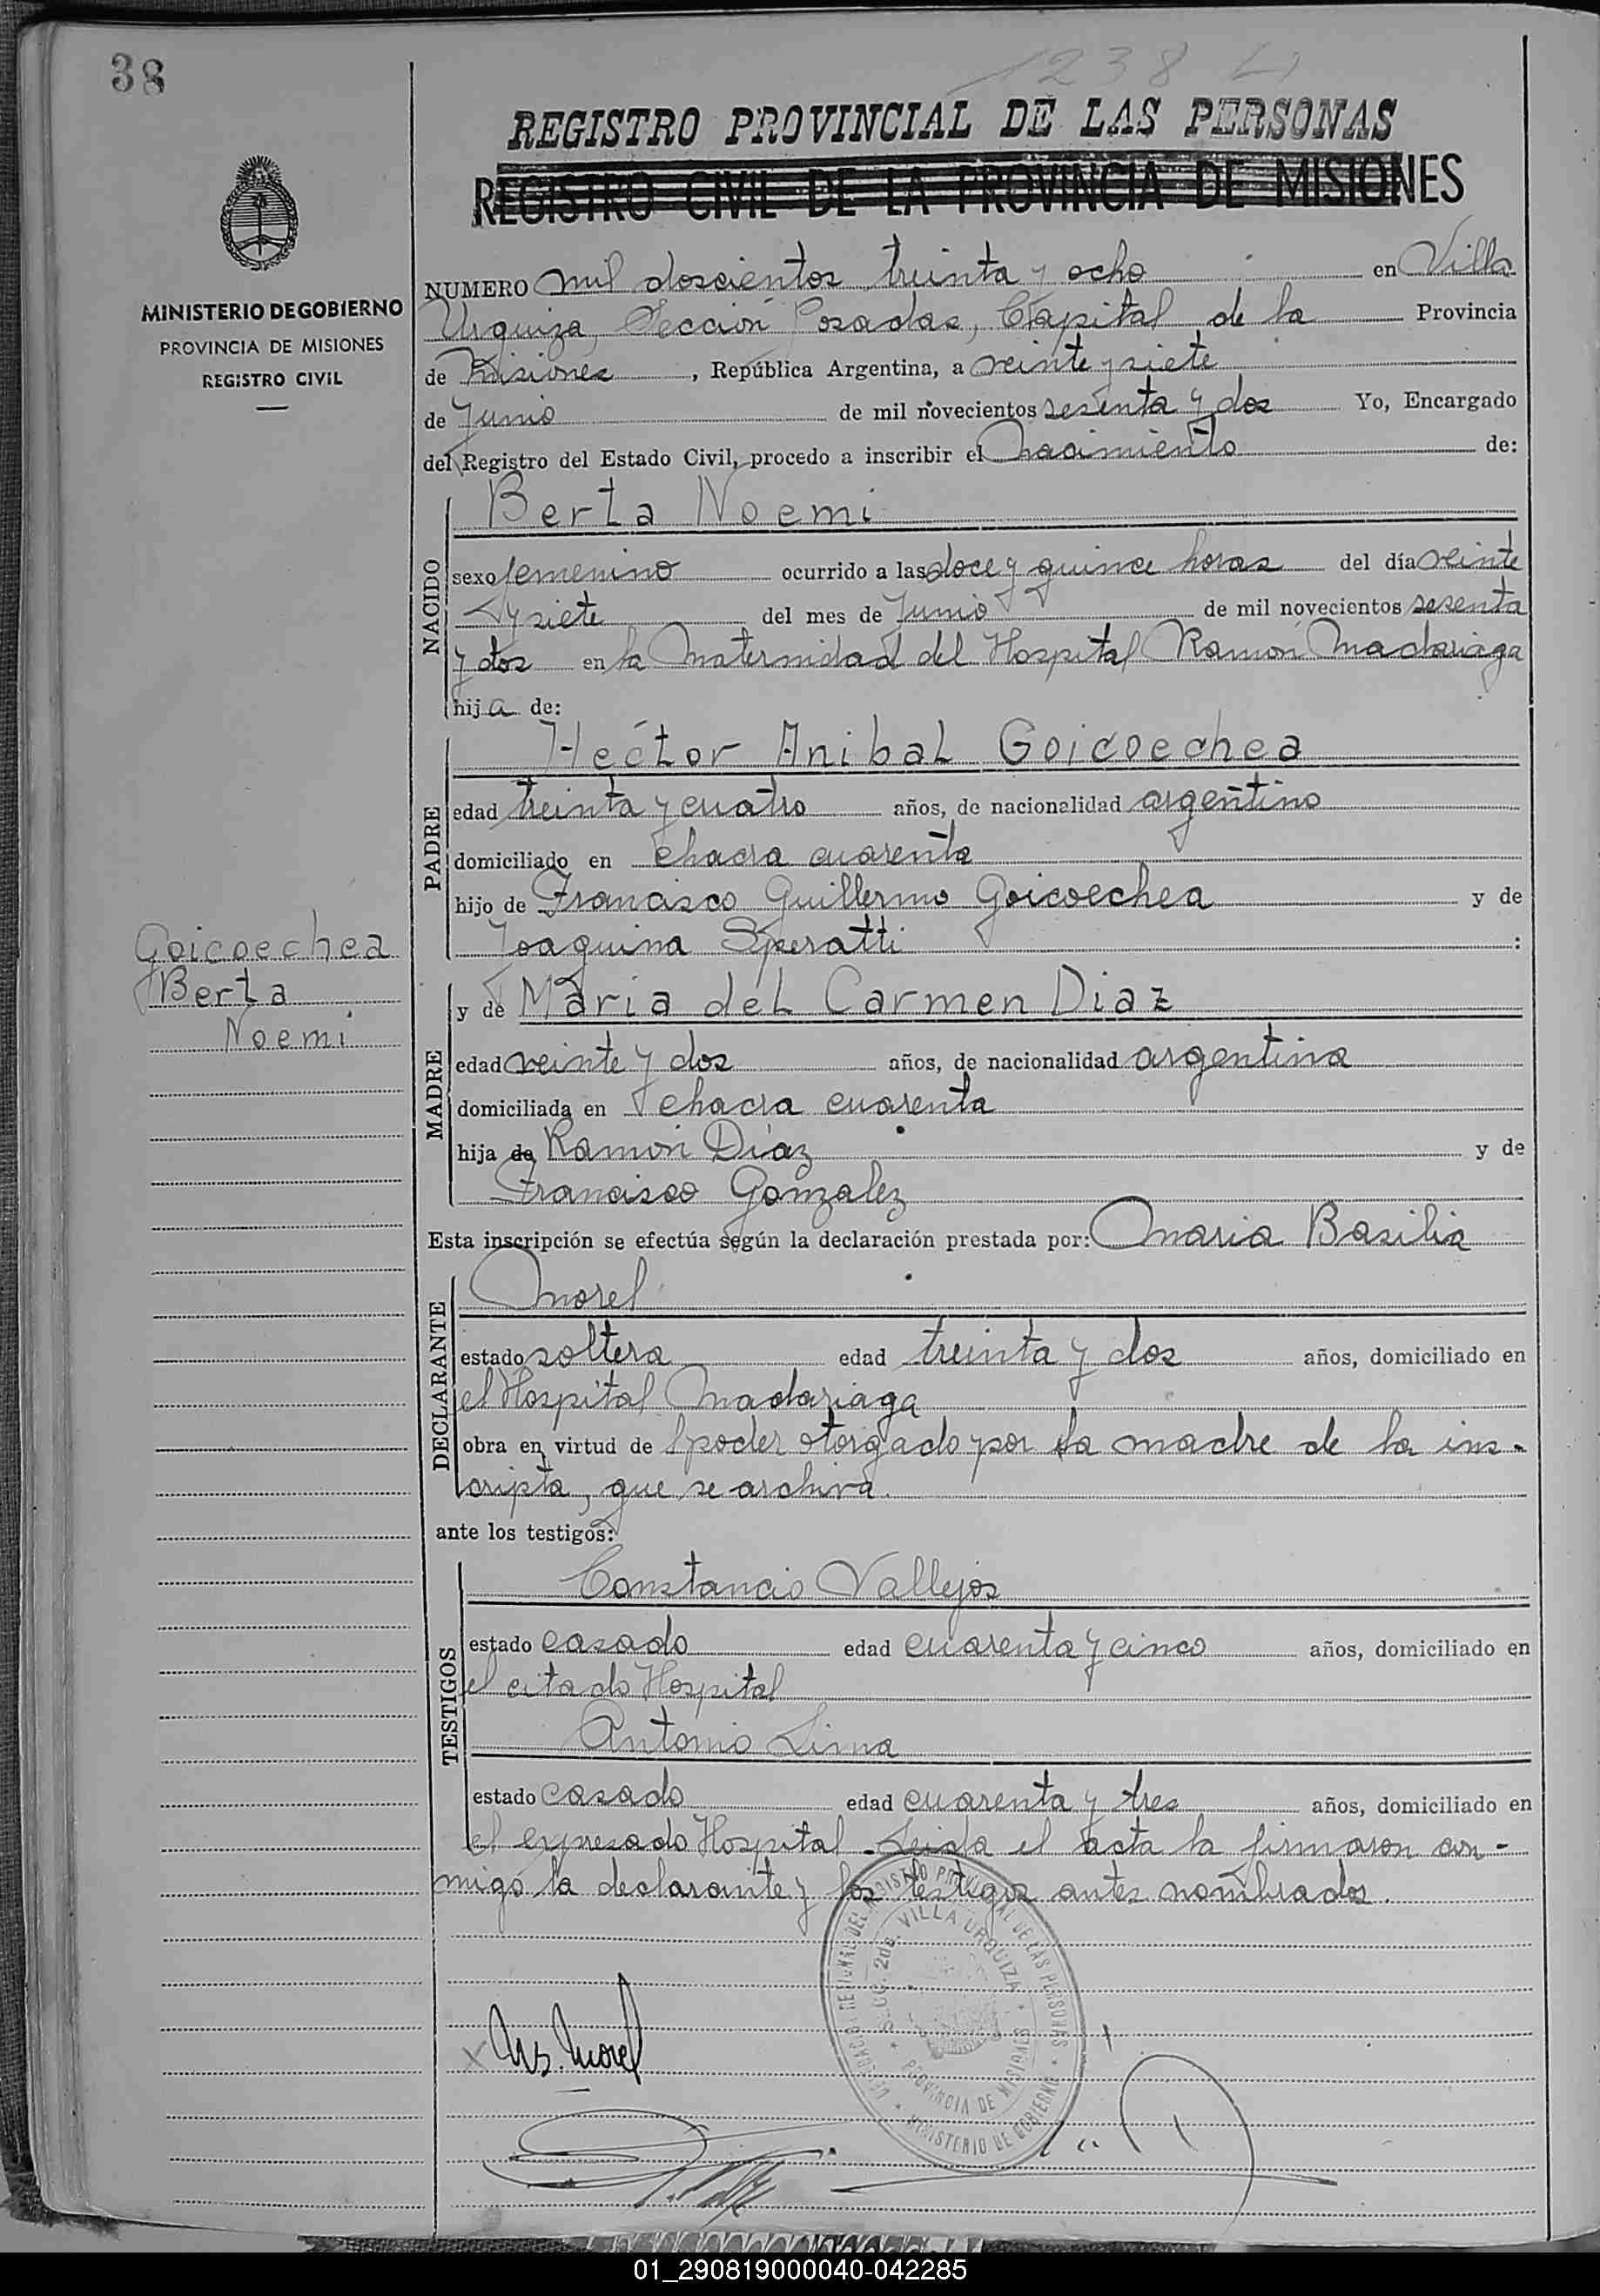 38
1238
REGISTRO PROVINCIAL DE LAS PERSONAS
REGISTRO CIVIL DE LA PROVINCIA DE MISIONES
MINISTERIO DE GOBIERNO
PROVINCIA DE MISIONES
REGISTRO CIVIL
NUMERO mil doscientos treinta y ocho en Villa
Urquiza, Sección Posadas, Capital de la Provincia
de Misiones, República Argentina, a veinte y siete
de Junio de mil novecientos sesenta y dos Yo, Encargado
del Registro del Estado Civil, procedo a inscribir el Nacimiento de:
NACIDO
Berta Noemi
sexo femenino ocurrido a las doce y quince horas del día veinte
y siete del mes de Junio de mil novecientos sesenta
y dos en la Maternidad del Hospital Ramón Madariaga
hija de:
PADRE
Hector Anibal Goicoechea
edad treinta y cuatro años, de nacionalidad argentino
domiciliado en chacra cuarenta
hijo de Francisco Guillermo Goicoechea y de
Joaquina Speratti :
Goicoechea
Berta
Noemi
MADRE
y de Maria del Carmen Diaz
edad veinte y dos años, de nacionalidad argentina
domiciliada en chacra cuarenta
hija de Ramón Díaz y de
Francisco Gonzalez
Esta inscripción se efectúa según la declaración prestada por: Maria Basilia
DECLARANTE
Morel
estado soltera edad treinta y dos años, domiciliado en
el Hospital Madariaga
obra en virtud de poder otorgado por la madre de la ins-
cripta, que se archiva.
ante los testigos:
TESTIGOS
Constancio Vallejos
estado casado edad cuarenta y cinco años, domiciliado en
el citado Hospital
Antonio Lima
estado casado edad cuarenta y tres años, domiciliado en
el expresado Hospital. Leida el acta la firmaron con-
migo la declarante y los testigos antes nombrados.
DELEGACION REGIONAL DEL REGISTRO PROVINCIAL DE LAS PERSONAS
SECC. 2da. VILLA URQUIZA
PROVINCIA DE MISIONES
MINISTERIO DE GOBIERNO
x Ms. Morel
01_290819000040-042285